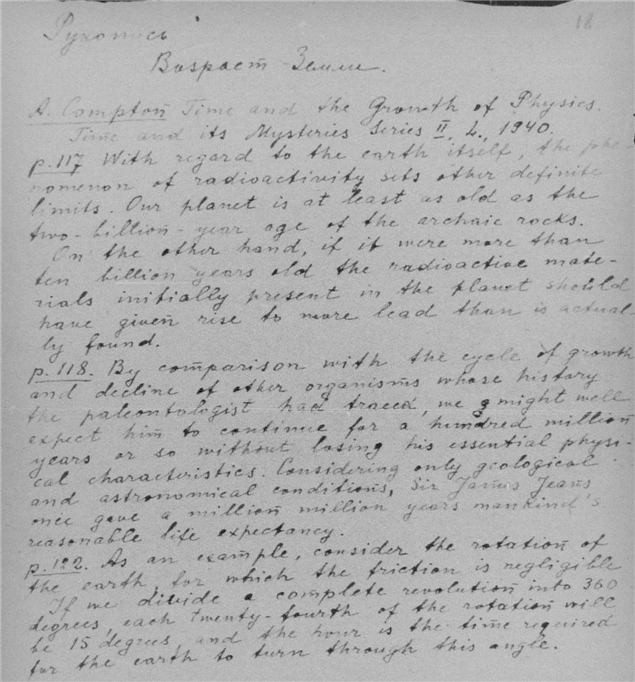 18
Рукопись
Возраст Земли.
A. Compton Time and the Growth of Physics.
Time and its Mysteries Series II, L., 1940.
p.117 With regard to the earth itself, the phe-
nomenon of radioactivity sets other definite
limits. Our planet is at least as old as the
two-billion-year age of the archaic rocks.
On the other hand, if it were more than
ten billion years old the radioactive mate-
rials initially present in the planet should
have given rise to more lead than is actual-
ly found.
p.118. By comparison with the cycle of growth
and decline of other organisms whose history
the paleontologist had traced, we might well
expect him to continue for a hundred million
years or so without losing his essential physi-
cal characteristics. Considering only geological
and astronomical conditions, Sir James Jeans
once gave a million million years mankind's
reasonable life expectancy.
p.122. As an example, consider the rotation of
the earth, for which the friction is negligible
If we divide a complete revolution into 360
degrees, each twenty-fourth of the rotation will
be 15 degrees, and the hour is the time required
for the earth to turn through this angle.